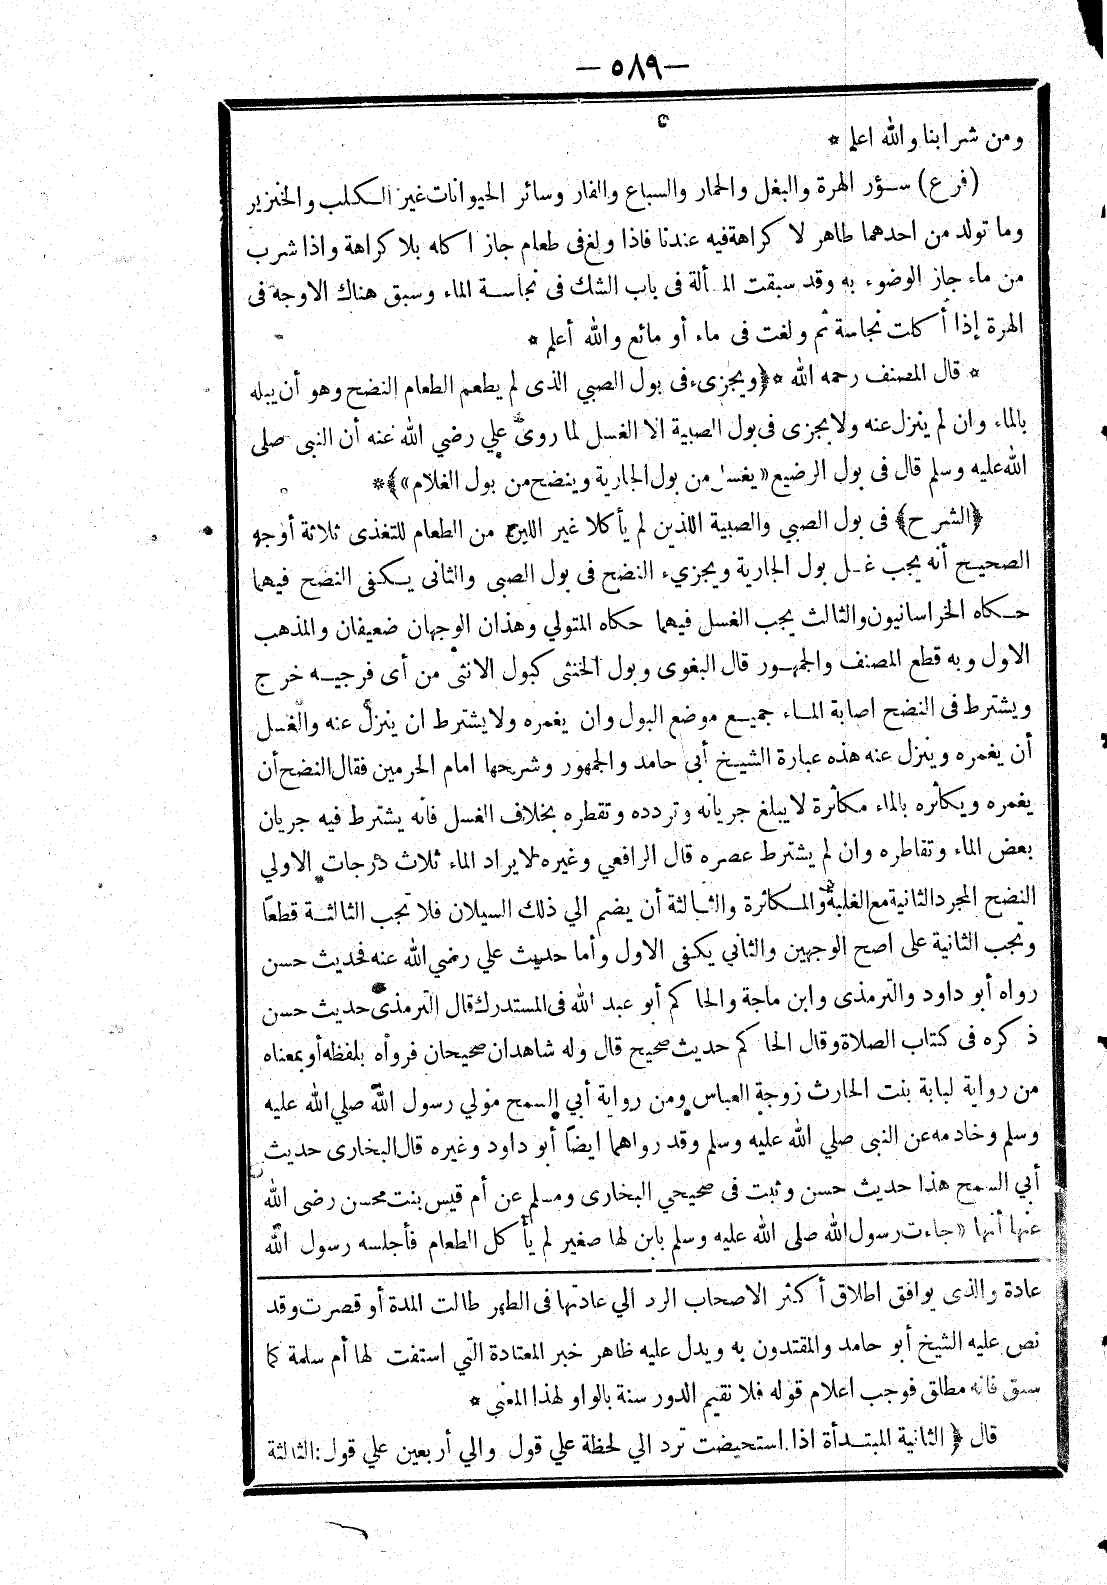 — ٥٨٩ —
ومن شرابنا والله اعلم *
(فرع) سؤر الهرة والبغل والحمار والسباع والفار وسائر الحيوانات غير الكلب والخنزير
وما تولد من احدهما طاهر لا كراهة فيه عندنا فاذا ولغ فى طعام جاز اكله بلا كراهة واذا شرب
من ماء جاز الوضوء به وقد سبقت المسألة فى باب الشك فى نجاسة الماء وسبق هناك الاوجه فى
الهرة إذا أكلت نجاسة ثم ولغت فى ماء أو مائع والله أعلم *
* قال المصنف رحمه الله * ﴿ويجزىء فى بول الصبي الذى لم يطعم الطعام النضح وهو أن يبله
بالماء وان لم ينزل عنه ولا يجزى فى بول الصبية الا الغسل لما روى علي رضي الله عنه أن النبى صلى
الله عليه وسلم قال فى بول الرضيع « يغسل من بول الجارية وينضح من بول الغلام »﴾*
﴿الشرح﴾ فى بول الصبي والصبية اللذين لم يأكلا غير اللبن من الطعام للتغذى ثلاثة أوجه
الصحيح أنه يجب غسل بول الجارية ويجزيء النضح فى بول الصبى والثانى يكفى النضح فيهما
حكاه الخراسانيون والثالث يجب الغسل فيهما حكاه المتولي وهذان الوجهان ضعيفان والمذهب
الاول وبه قطع المصنف والجمهور قال البغوى وبول الخنثى كبول الانثى من أى فرجيه خرج
ويشترط فى النضح اصابة الماء جميع موضع البول وان يغمره ولا يشترط ان ينزل عنه والغسل
أن يغمره وينزل عنه هذه عبارة الشيخ أبى حامد والجمهور وشرحها امام الحرمين فقال النضح أن
يغمره ويكاثره بالماء مكاثرة لا يبلغ جريانه وتردده وتقطره بخلاف الغسل فانه يشترط فيه جريان
بعض الماء وتقاطره وان لم يشترط عصره قال الرافعي وغيره لايراد الماء ثلاث درجات الاولي
النضح المجرد الثانية مع الغلبة والمكاثرة والثالثة أن يضم الي ذلك السيلان فلا تجب الثالثة قطعًا
وتجب الثانية على اصح الوجهين والثاني يكفى الاول وأما حديث علي رضي الله عنه فحديث حسن
رواه أبو داود والترمذى وابن ماجة والحاكم أبو عبد الله فى المستدرك قال الترمذى حديث حسن
ذكره فى كتاب الصلاة وقال الحاكم حديث صحيح قال وله شاهدان صحيحان فرواه بلفظه أو بمعناه
من رواية لبابة بنت الحارث زوجة العباس ومن رواية أبي السمح مولي رسول الله صلي الله عليه
وسلم وخادمه عن النبى صلي الله عليه وسلم وقد رواهما ايضًا أبو داود وغيره قال البخارى حديث
أبي السمح هذا حديث حسن وثبت فى صحيحي البخارى ومسلم عن أم قيس بنت محسن رضى الله
عنها أنها « جاءت رسول الله صلى الله عليه وسلم بابن لها صغير لم يأكل الطعام فأجلسه رسول الله
عادة والذى يوافق اطلاق أكثر الاصحاب الرد الي عادتها فى الطهر طالت المدة أو قصرت وقد
نص عليه الشيخ أبو حامد والمقتدون به ويدل عليه ظاهر خبر المعتادة التي استفت لها أم سلمة كما
سبق فانه مطلق فوجب اعلام قوله فلا نقيم الدور سنة بالواو لهذا المعنى *
قال ﴿ الثانية المبتدأة اذا استحيضت ترد الي لحظة علي قول والي أربعين علي قول : الثالثة